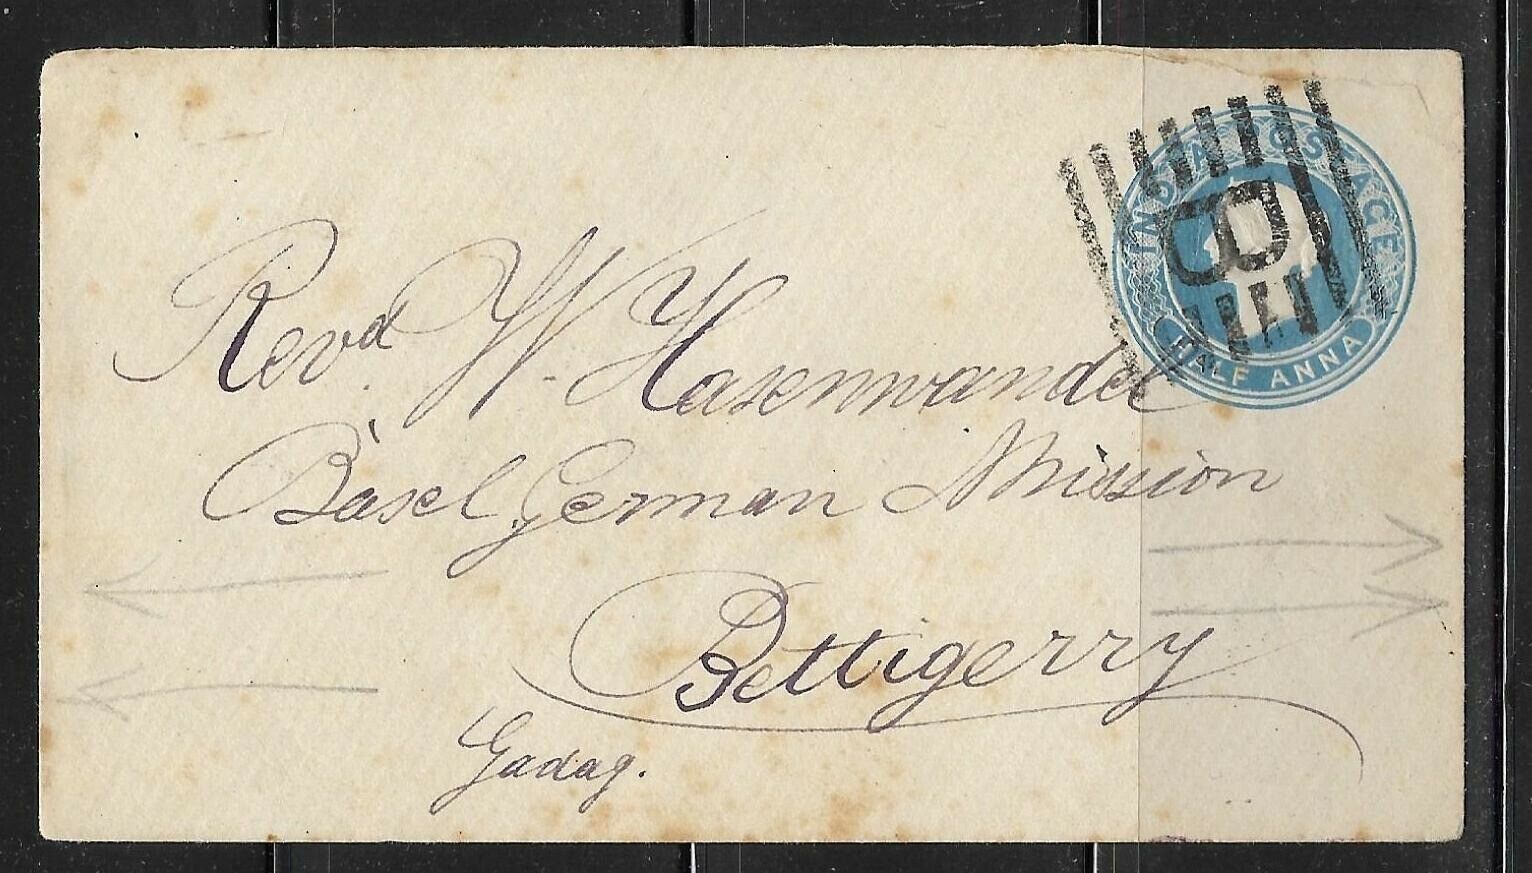 INDIA POSTAGE
B
HALF ANNA
Revd. W. Hasenwandel
Basel German Mission
Bettigerry
Gadag.